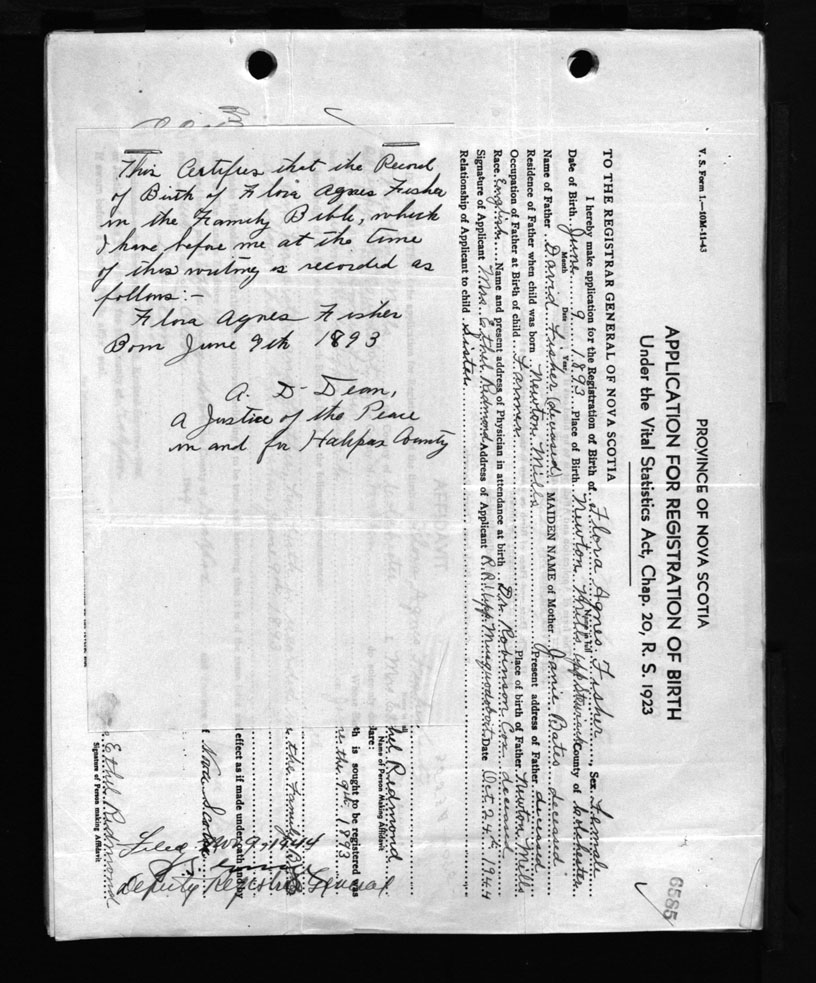 V. S. Form 1.—10M-11-43
6585
PROVINCE OF NOVA SCOTIA
APPLICATION FOR REGISTRATION OF BIRTH
Under the Vital Statistics Act, Chap. 20, R. S. 1923
TO THE REGISTRAR GENERAL OF NOVA SCOTIA
I hereby make application for the Registration of Birth of Flora Agnes Fisher, Sex Female
Date of Birth June 9 1893 Place of Birth Newton Mills Upp. Stewiacke County of Colchester
Month Day Year
Name of Father David Fisher (deceased) MAIDEN NAME of Mother Janie Bates deceased
Residence of Father when child was born Newton Mills Present address of Father deceased
Occupation of Father at Birth of child Farmer Place of birth of Father Newton Mills
Race English Name and present address of Physician in attendance at birth Dr. Robinson Cox deceased
Signature of Applicant Mrs. Ethel Redmond Address of Applicant R.R.1 Upp. Musquodoboit Date Oct. 24th 1944
Relationship of Applicant to child Sister
This Certifies that the Record
of Birth of Flora Agnes Fisher
in the Family Bible, which
I have before me at the time
of this writing is recorded as
follows:-
Flora Agnes Fisher
Born June 9th 1893
A. D. Dean,
a Justice of the Peace
in and for Halifax County
AFFIDAVIT
Redmond
Name of Person Making Affidavit
lare:
th is sought to be registered was
the 9th 1893
the Family Bible
effect as if made under oath and by
Nova Scotia
Ethel Redmond
Signature of Person making Affidavit
Filed Nov 9, 1944
Deputy Registrar General